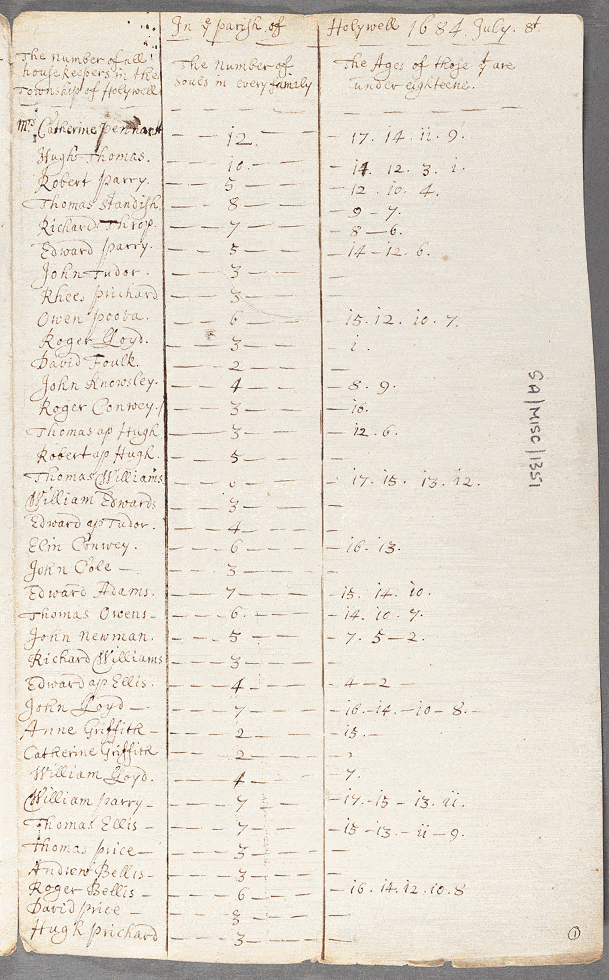 In ye parish of Holywell 1684 July. 8t
The number of all housekeepers in the Township of Holywell
The number of souls in every family
The Ages of those yt are under eighteene.
Mrs Catherine pennant — — 12. — — 17. 14. 11. 9.
Hugh Thomas. — — 10. — — 14. 12. 3. 1.
Robert parry. — — 5 — — 12. 10. 4.
Thomas Standish — — 8 — — 9 — 7.
Richard Throp. — — 7 — — 8 — 6.
Edward parry. — — 5 — — 14 — 12. 6.
John Tudor. — — 3 — — —
Rhees prichard — — 3 — — —
Owen pooba. — — 6 — — 15. 12. 10. 7.
Roger Lloyd. — — 3 — — 1.
David Foulk. — — 2 — — —
John Knowsley. — — 4 — — 8. 9.
Roger Conwey. — — 3 — — 16.
Thomas ap Hugh — — 3 — — 12. 6.
Robert ap Hugh. — — 5 — — —
Thomas Williams — — — — 17. 15. 13. 12.
William Edwards — — 3 — — —
Edward ap Tudor. — — 4 — — —
Elin Conwey. — — 6 — — 16. 13.
John Cole — — — 3 — — —
Edward Adams. — — 7 — — 15. 14. 10.
Thomas Owens — — — 6. — — 14. 10. 7.
John Newman. — — 5 — — 7. 5 — 2.
Richard Williams — — 3 — — —
Edward ap Ellis. — — 4 — — 4 — 2 —
John Lloyd — — — 7 — — 16. — 14. — 10 — 8. —
Anne Griffith — — — 2 — — 15. —
Catherine Griffith — — 2 — —
William Lloyd. — — 4 — — 7.
William parry — — — 7 — — 17. — 15 — 13. 11.
Thomas Ellis — — — 7 — — 15 — 13. — 11 — 9.
Thomas price — — — 3 — — —
Andrew Bellis — — — 3 — — —
Roger Bellis — — — 6 — — 16. 14. 12. 10. 8
David price — — — 3 — — —
Hugh prichard — — 3 — — —
SA/MISC/1351
1